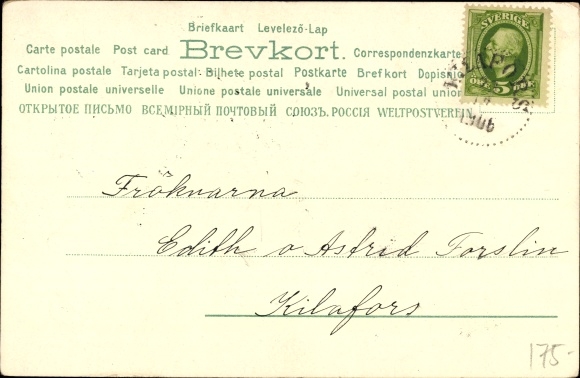 Briefkaart Levelező-Lap
Carte postale Post card Brevkort. Correspondenzkarte
Cartolina postale Tarjeta postal Bilhete postal Postkarte Brefkort Dopisnic
Union postale universelle Unione postale universale Universal postal union
ОТКРЫТОЕ ПИСЬМО ВСЕМІРНЫЙ ПОЧТОВЫЙ СОЮЗЪ. РОССІЯ WELTPOSTVEREIN
SVERIGE
5
KILAFORS
1906
Frökvarna
Edith o Astrid Forslin
Kilafors
175-